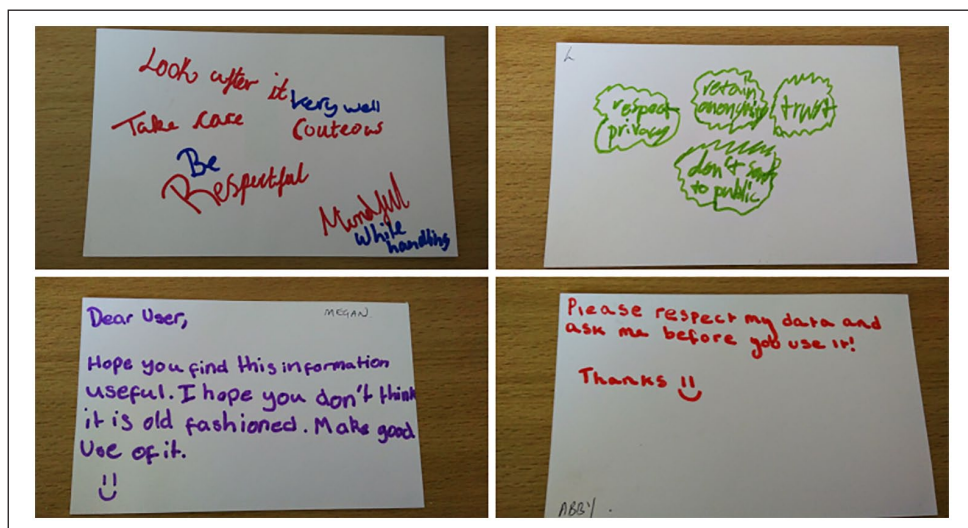 Look after it
very well
Take care
Couteous
Be
Respectful
Mindful
while
handling
L
respect
privacy
retain
anonymity
trust
don't
to public
MEGAN.
Dear User,
Hope you find this information
useful. I hope you don't think
it is old fashioned. Make good
Use of it.
Please respect my data and
ask me before you use it!
Thanks
ABBY.